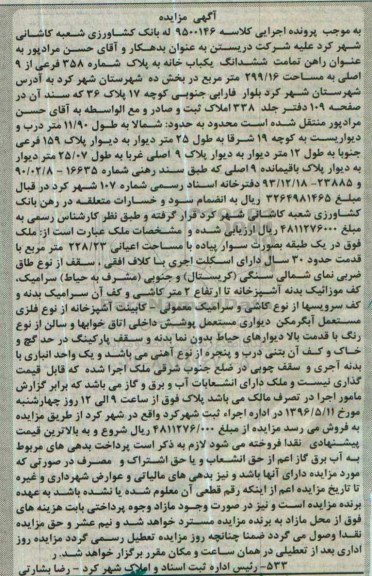 آگهی مزایده
به موجب پرونده اجرایی کلاسه ۹۵۰۰۱۴۶ له بانک کشاورزی شعبه کاشانی
شهر کرد علیه شرکت دریستن به عنوان بدهکار و آقای حسن مرادپور به
عنوان راهن تمامت ششدانگ یکباب خانه به پلاک شماره ۳۵۸ فرعی از ۹
اصلی به مساحت ۲۹۹/۱۶ متر مربع در بخش ده شهرستان شهر کرد به آدرس
شهرستان شهر کرد بلوار فارابی جنوبی کوچه ۱۷ پلاک ۳۶ که سند آن در
صفحه ۱۰۹ دفتر جلد ۳۳۸ املاک ثبت و صادر و مع الواسطه به آقای حسن
مرادپور منتقل شده است محدود به حدود: شمالا به طول ۱۱/۹۰ متر درب و
دیواریست به کوچه ۱۹ شرقا به طول ۲۵ متر دیوار به دیوار پلاک ۱۵۹ فرعی
جنوبا به طول ۱۲ متر دیوار به دیوار پلاک ۹ اصلی غربا به طول ۲۵/۰۷ متر دیوار
به دیوار پلاک باقیمانده ۹ اصلی که طبق سند رهنی شماره ۱۶۶۳۵ – ۹۰/۰۲/۸
و ۲۳۸۸۵– ۹۳/۱۲/۱۸ دفترخانه اسناد رسمی شماره ۱۰۷ شهر کرد در قبال
مبلغ ۳۲۶۴۹۸۱۴۶۵ ریال به انضمام سود و خسارات متعلقه در رهن بانک
کشاورزی شعبه کاشانی شهر کرد قرار گرفته و طبق نظر کارشناس رسمی به
مبلغ ۴۸۱۱۲۷۶۰۰۰ ریال ارزیابی شده و مشخصات ملک عبارت است از: ملک
فوق در یک طبقه بصورت سوار پیاده با مساحت اعیانی ۲۲۸/۲۳ متر مربع با
قدمت حدود ۳۰ سال دارای اسکلت اجری با کلاف افقی , سقف از نوع طاق
ضربی نمای شمالی سنگی (کریستال) و جنوبی (مشرف به حیاط) سرامیک,
کف موزائیک بدنه آشپزخانه تا ارتفاع ۲ متر کاشی و کف آن سرامیک بدنه و
کف سرویسها از نوع کاشی و سرامیک معمولی – کابینت آشپزخانه از نوع فلزی
مستعمل آبگرمکن دیواری مستعمل پوشش داخلی اتاق خوابها و سالن از نوع
رنگ با قدمت بالا دیوارهای حیاط بدون نما بدنه و سقف پارکینگ در حد گچ و
خاک و کف آن بتنی درب و پنجره از نوع آهنی می باشد و یک واحد انباری با
بدنه آجری و سقف چوبی در ضلع جنوب شرقی ملک اجرا شده که قابل قیمت
گذاری نیست و ملک دارای انشعابات آب و برق و گاز می باشد که برابر گزارش
مامور اجرا در تصرف مالک می باشد پلاک فوق از ساعت ۹ الی ۱۲ روز چهارشنبه
مورخ ۱۳۹۶/۵/۱۱ در اداره اجراء ثبت شهرکرد واقع در شهر کرد از طریق مزایده
به فروش می رسد مزایده از مبلغ ۴۸۱۱۲۷۶/۰۰۰ ریال شروع و به بالاترین قیمت
پیشنهادی نقدا فروخته می شود لازم به ذکر است پرداخت بدهی های مربوط
به آب برق گاز اعم از حق انشعاب و یا حق اشتراک و مصرف در صورتی که
مورد مزایده دارای آنها باشد و نیز بدهی های مالیاتی و عوارض شهرداری و غیره
تا تاریخ مزایده اعم از اینکه رقم قطعی آن معلوم شده یا نشده باشد به عهده
برنده مزایده است و نیز در صورت وجود مازاد وجوه پرداختی بابت هزینه های
فوق از محل مازاد به برنده مزایده مسترد خواهد شد و نیم عشر و حق مزایده
نقدا وصول می گردد ضمنا چنانچه روز مزایده تعطیل رسمی گردد مزایده روز
اداری بعد از تعطیلی در همان ساعت و مکان مقرر برگزار خواهد شد. ر
۵۳۳– رئیس اداره ثبت اسناد و املاک شهر کرد – رضا بشارتی